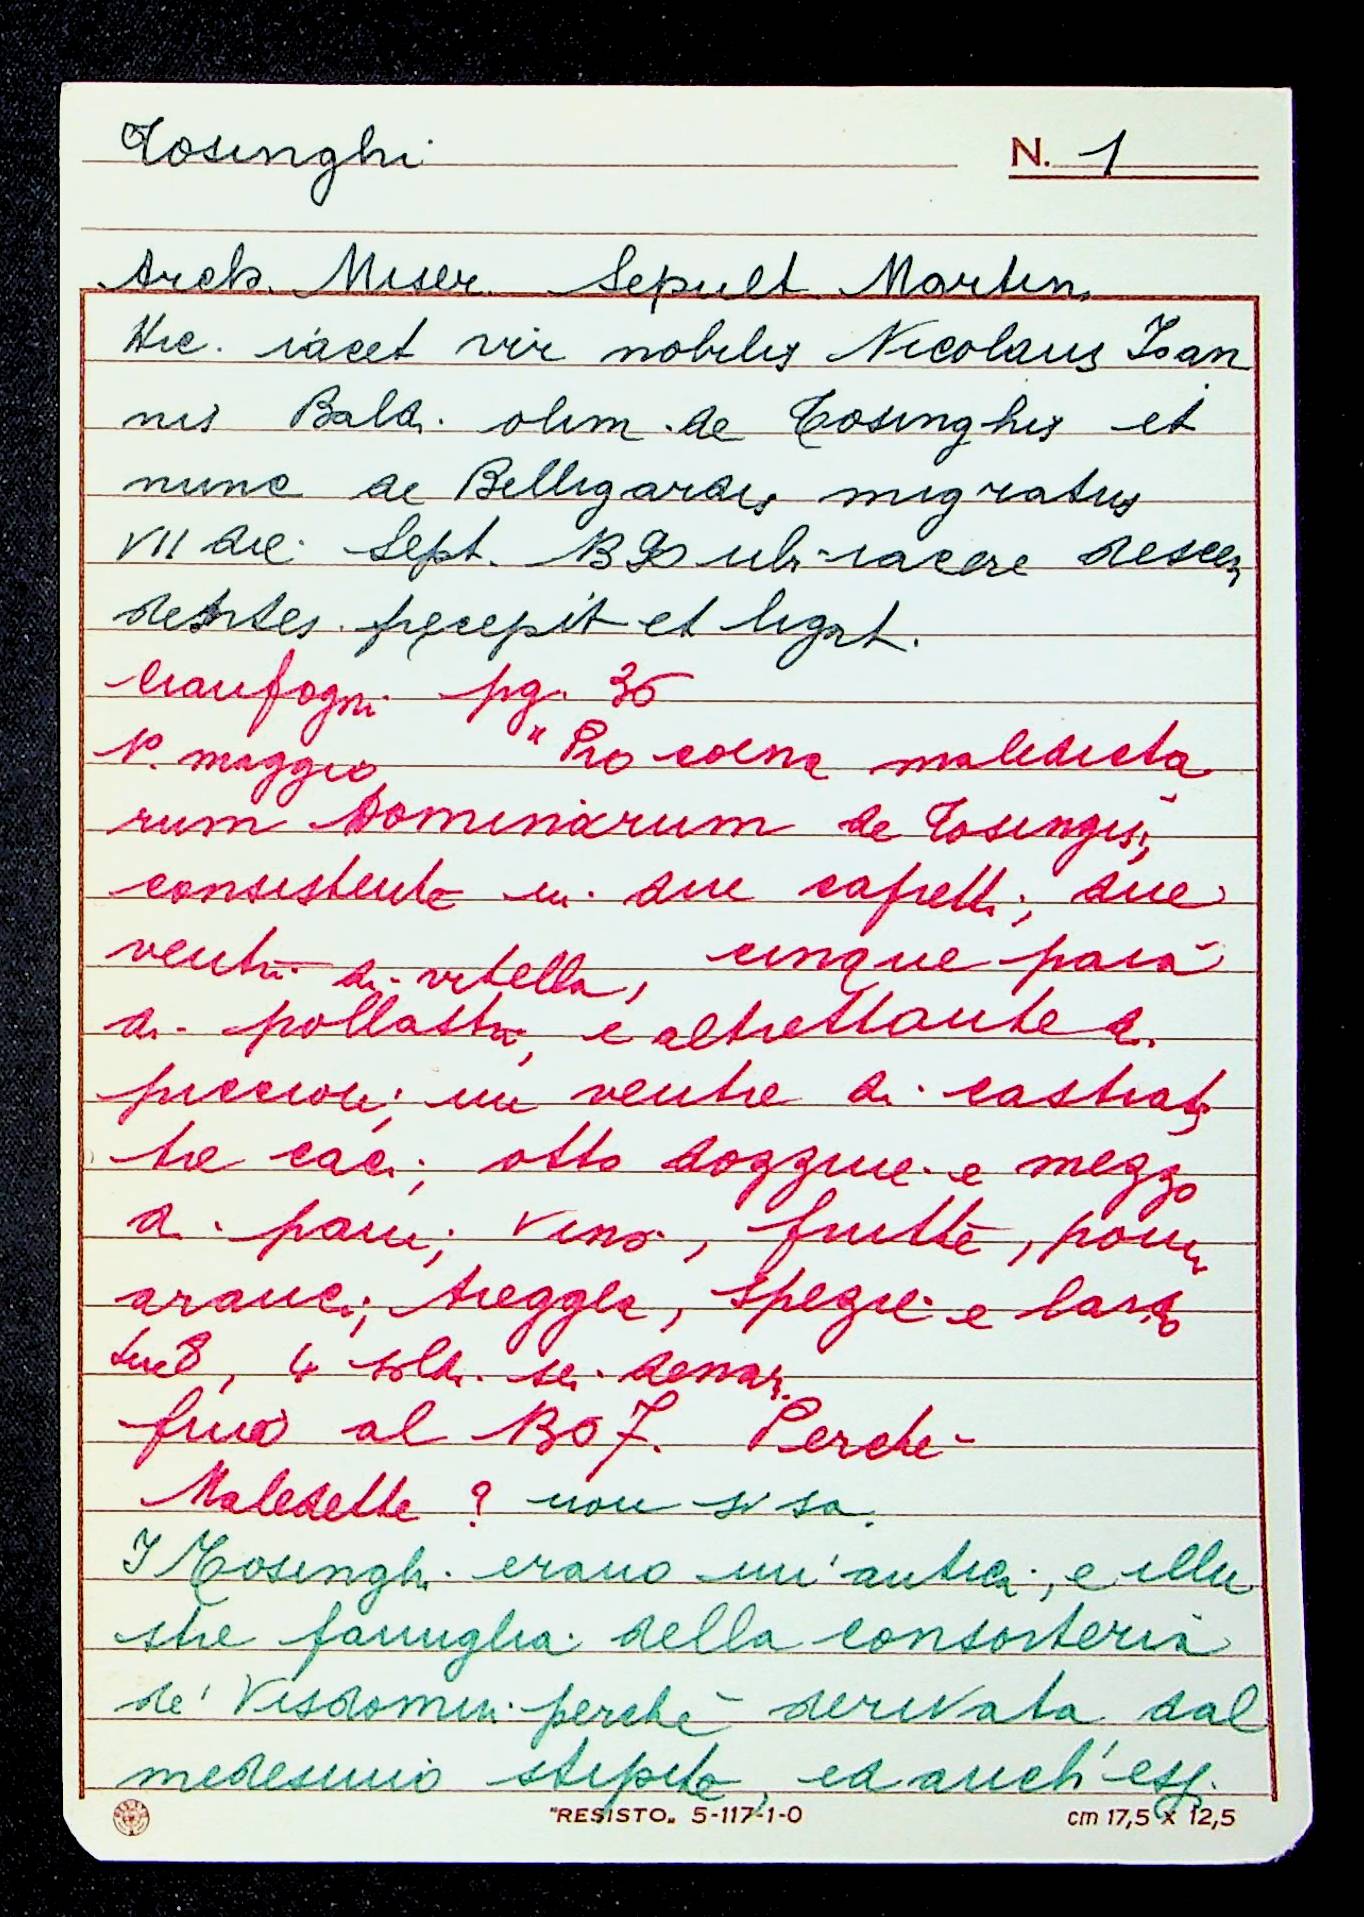 Tosinghi
N. 1
Arch. Miser. Sepult. Martin.
Hic. iacet vir nobilis Nicolaus Ioan
nis Bald. olim de Tosinghis et
nunc de Belligardis migratus
VII die Sept. ubi iacere descen
dentes precepit et
pg. 36
P. maggio "Pro coena maledicta
rum Dominarum de Tosingis",
consistente in due capretti, due
ventri di vitella, cinque paia
di pollastri, e altrettante di
piccioni; un ventre di castrato,
tre caci; otto dozzine e mezzo
di pani; vino, frutte, pomi
aranci, treggea, spezie e
8, 4 soldi sei denari
fino al 1307. Perchè
Maledette? non si sa.
I Tosinghi erano un'antica, e illu
stre famiglia della consorteria
de' Visdomini perchè derivata dal
medesimo stipite, ed anch'essi
"RESISTO„ 5-117-1-0
cm 17,5 x 12,5